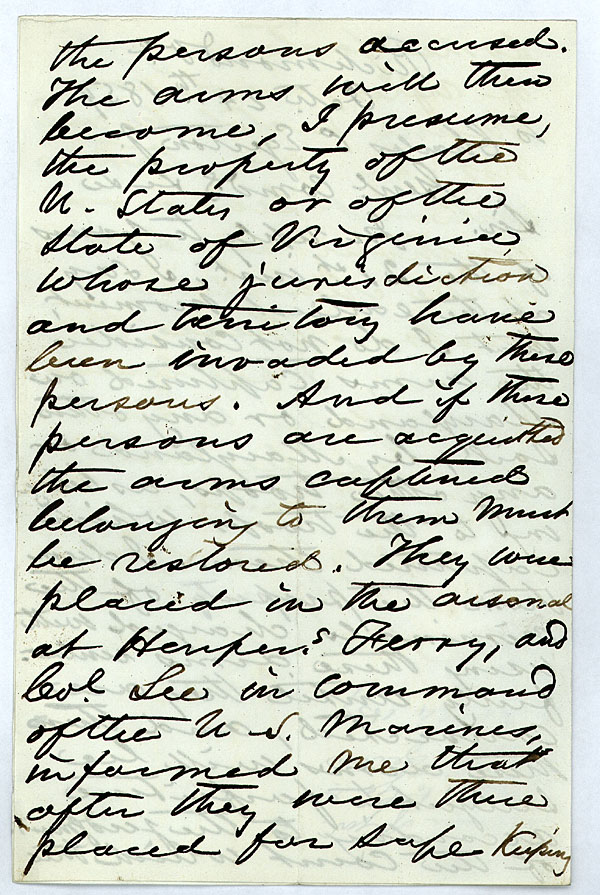 the persons accused.
The arms will then
become, I presume,
the property of the
U. States or of the
State of Virginia,
whose jurisdiction
and territory have
been invaded by these
persons. And if these
persons are acquitted
the arms captured
belonging to them must
be restored. They were
placed in the arsenal
at Harper's Ferry, and
Col. Lee in command
of the U S. Marines,
informed me that
after they were there
placed for safe keeping